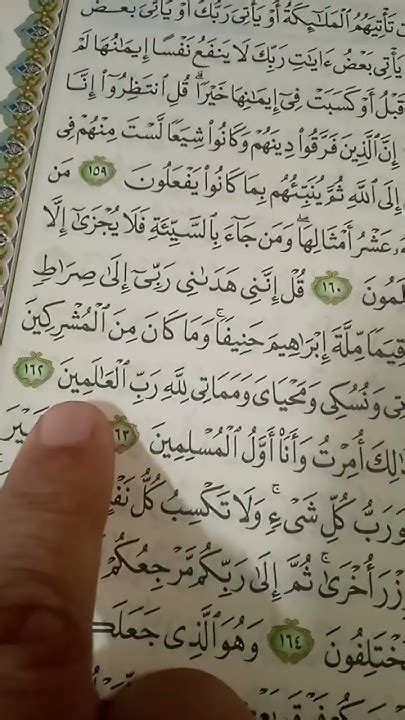 تَأْتِيَهُمُ ٱلْمَلَـٰٓئِكَةُ أَوْ يَأْتِىَ رَبُّكَ أَوْ يَأْتِىَ بَعْضُ
يَأْتِى بَعْضُ ءَايَـٰتِ رَبِّكَ لَا يَنفَعُ نَفْسًا إِيمَـٰنُهَا لَمْ
قَبْلُ أَوْ كَسَبَتْ فِىٓ إِيمَـٰنِهَا خَيْرًا ۗ قُلِ ٱنتَظِرُوٓا۟ إِنَّا
إِنَّ ٱلَّذِينَ فَرَّقُوا۟ دِينَهُمْ وَكَانُوا۟ شِيَعًا لَّسْتَ مِنْهُمْ فِى
إِلَى ٱللَّهِ ثُمَّ يُنَبِّئُهُم بِمَا كَانُوا۟ يَفْعَلُونَ ١٥٩ مَن
عَشْرُ أَمْثَالِهَا ۖ وَمَن جَآءَ بِٱلسَّيِّئَةِ فَلَا يُجْزَىٰٓ إِلَّا
ظْلَمُونَ ١٦٠ قُلْ إِنَّنِى هَدَىٰنِى رَبِّىٓ إِلَىٰ صِرَٰطٍ
قِيَمًا مِّلَّةَ إِبْرَٰهِيمَ حَنِيفًا ۚ وَمَا كَانَ مِنَ ٱلْمُشْرِكِينَ
تِى وَنُسُكِى وَمَحْيَاىَ وَمَمَاتِى لِلَّهِ رَبِّ ٱلْعَـٰلَمِينَ ١٦٢
ذَٰلِكَ أُمِرْتُ وَأَنَا۠ أَوَّلُ ٱلْمُسْلِمِينَ
وَرَبُّ كُلِّ شَىْءٍ ۚ وَلَا تَكْسِبُ كُلُّ
وِزْرَ أُخْرَىٰ ۚ ثُمَّ إِلَىٰ رَبِّكُم مَّرْجِعُكُمْ
تَخْتَلِفُونَ ١٦٤ وَهُوَ ٱلَّذِى